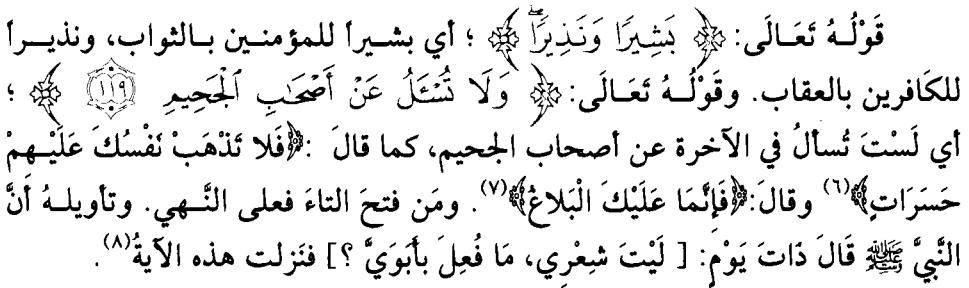 قَوْلُهُ تَعَالَى: ﴿ بَشِيرًا وَنَذِيرًاۖ ﴾ ؛ أي بشيراً للمؤمنين بالثواب، ونذيراً
للكَافرين بالعقاب. وقَوْلُهُ تَعَالَى: ﴿ وَلَا تُسْـَٔلُ عَنْ أَصْحَـٰبِ ٱلْجَحِيمِ ﴿١١٩﴾ ﴾ ؛
أي لَسْتَ تُسأَلُ في الآخرة عن أصحاب الجحيم، كما قالَ :﴿فَلا تَذْهَبْ نَفْسُكَ عَلَيْهِمْ
حَسَرَاتٍ﴾(٦) وقالَ:﴿فَإِنَّمَا عَلَيْكَ الْبَلاَغُ﴾(٧). ومَن فتحَ التاءَ فعلى النَّهي. وتأويلهُ أنَّ
النَّبِيَّ ﷺ قَالَ ذَاتَ يَوْمٍ: [ لَيْتَ شِعْرِي، مَا فُعِلَ بأَبَوَيَّ ؟] فنَزلت هذه الآيةُ(٨).